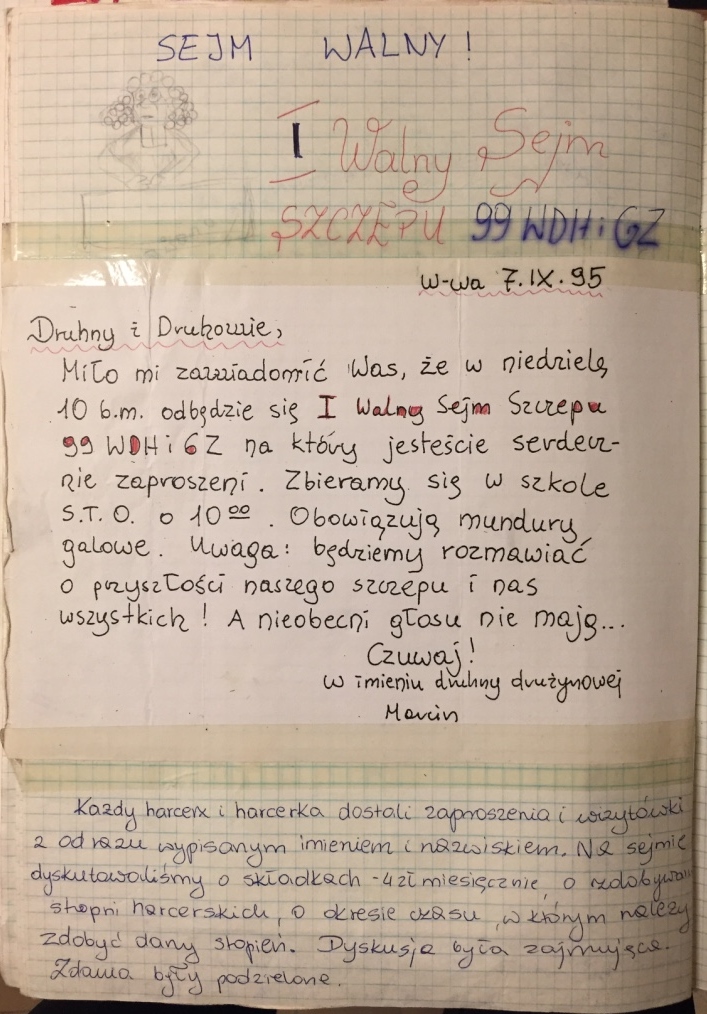 SEJM WALNY!
I Walny Sejm
SZCZEPU 99 WDH i GZ
W-wa 7.IX.95
Druhny i Druhowie,
Miło mi zawiadomić Was, że w niedzielę
10 b.m. odbędzie się I Walny Sejm Szczepu
99 WDH i GZ na który jesteście serdecz-
nie zaproszeni. Zbieramy się w szkole
S.T.O. o 10 00. Obowiązują mundury
galowe. Uwaga: będziemy rozmawiać
o przyszłości naszego szczepu i nas
wszystkich! A nieobecni głosu nie mają...
Czuwaj!
w imieniu druhny drużynowej
Marcin
Każdy harcerz i harcerka dostali zaproszenia i wizytówki
z od razu wypisanym imieniem i nazwiskiem. Na sejmie
dyskutowaliśmy o składkach - 4 zł miesięcznie, o zdobywan
stopni harcerskich, o okresie czasu, w którym należy
zdobyć dany stopień. Dyskusja była zajmująca.
Zdania były podzielone.